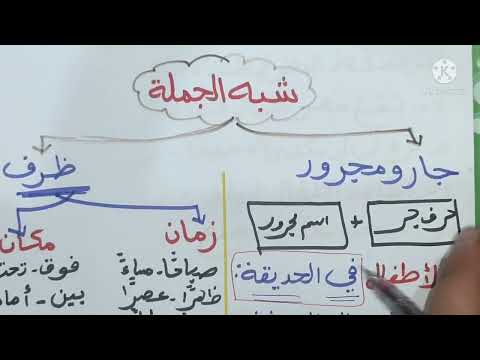 شبه الجملة
جار ومجرور
ظرف
حرف جر + اسم مجرور
زمان
مكان
الأطفال في الحديقة.
صباحًا - مساءً
ظهرًا - عصرًا
فوق - تحت
بين - أمام